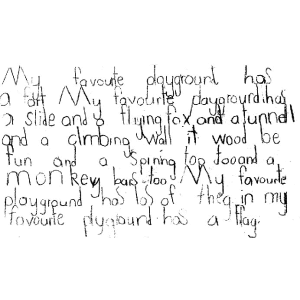 My favourite playground has
a fort My favourite playground has
a slide and a flying fox and a funnell
and a climbing wall it wood be
fun and a spining top tooand a
monkey bars too My favourite
playground has los of theg in my
favourite plyground has a flag.